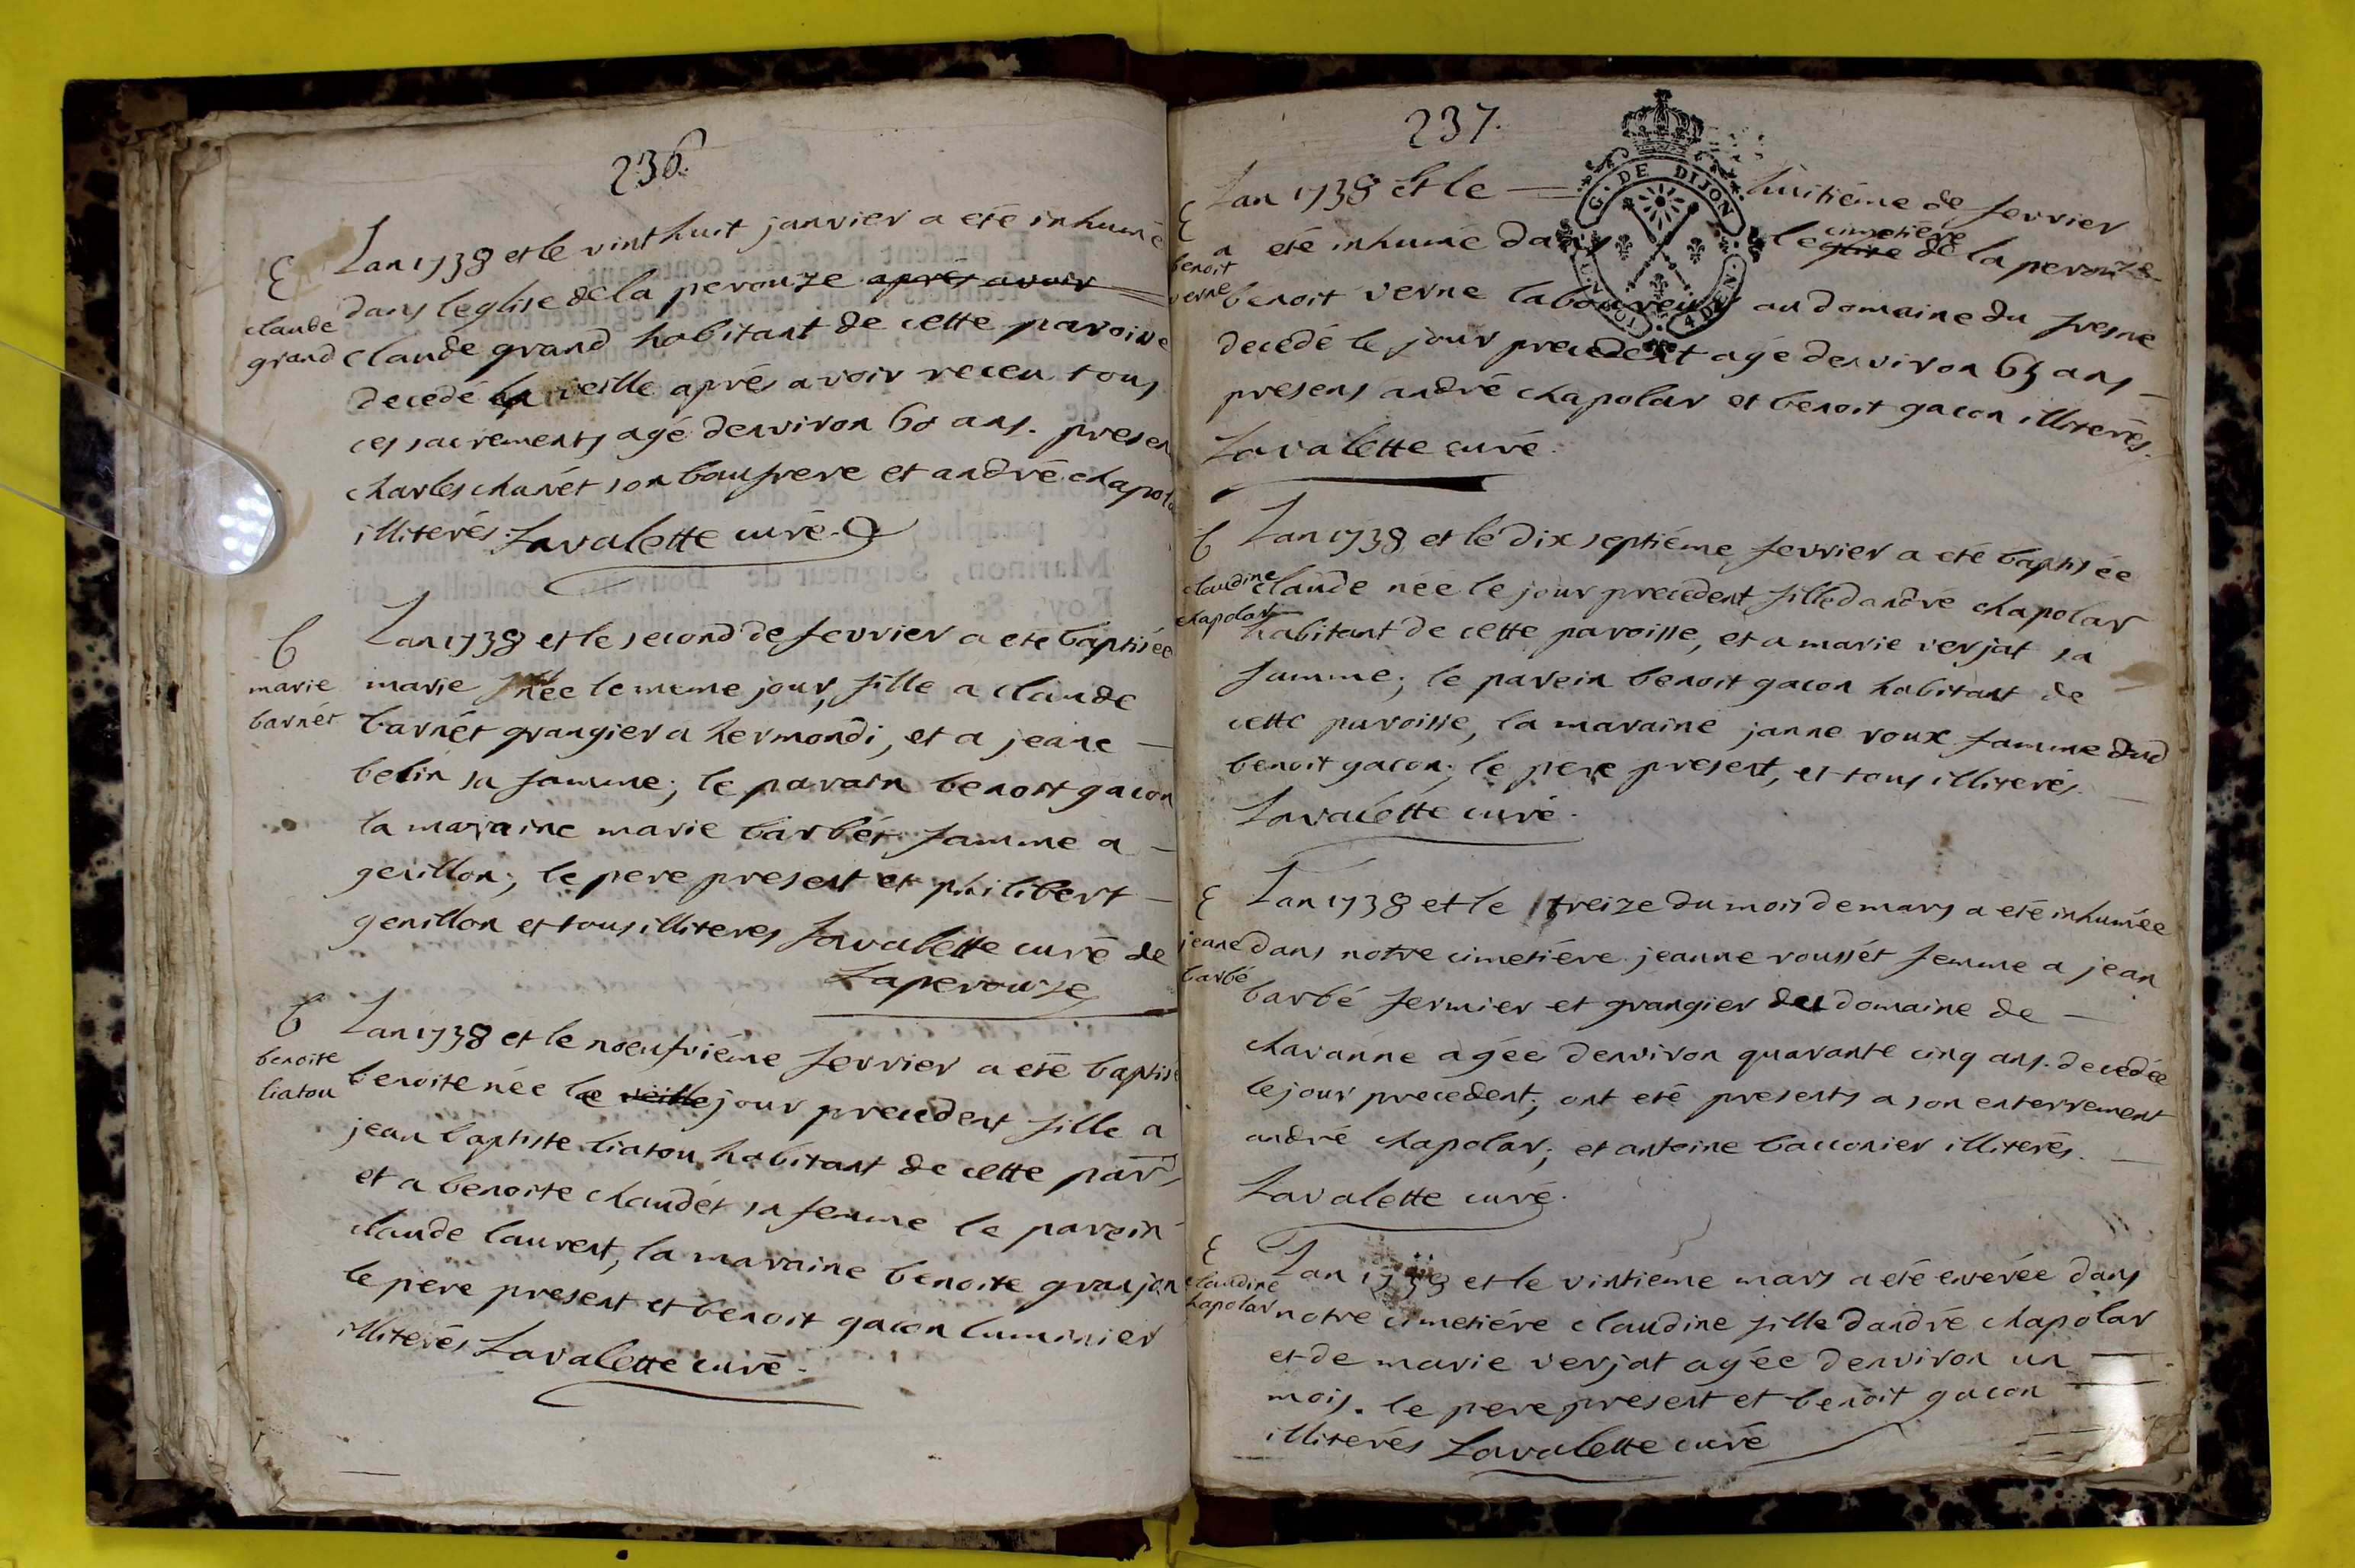 236.
E
claude
grand
Lan 1738 et le vint huit janvier a eté inhumé
dans leglise de la perouze aprés avoir
claude grand habitant de cette paroisse
decedé la veille aprés avoir receu tous
ces sacrements agé denviron 60 ans. presen
charles charét son baufrere et andré chapola
illiterés. Lavalette curé.
b
marie
barnét
Lan 1738 et le second de fevrier a eté baptisée
marie née le meme jour, fille a claude
barnét grangier a hermondi, et a jeane
belin sa famme; le parain benoit gacon
la maraine marie barbét famme a
genillon; le pere present et philibert
genillon et tous illiteres Lavalette curé de
Laperouze
b
benoite
liatou
Lan 1738 et le noeufviéme fevrier a eté baptisé
benoite née le veille jour precedent fille a
jean baptiste liatou habitant de cette par
et a benoite chaudét sa femme le parein
claude laurent, la maraine benoite granjon
le pere present et benoit gacon luminier
illiterés Lavalette curé.
237.
G. DE DIJON
4 DEN.
E
benoit
verne
Lan 1738 et le huitiéme de fevrier
cimetiére
a eté inhumé dans leglise de la perouze
benoit verne laboureur au domaine du fresne
decedé le jour precedent agé denviron 65 ans
presens andré chapolar et benoit gacon illiterés.
Lavalette curé.
b
claudine
chapolar
Lan 1738 et le dix septiéme fevrier a eté baptisée
claude née le jour precedent fille dandré chapolar
habitant de cette paroisse, et a marie verjat sa
famme; le parein benoit gacon habitant de
cette paroisse, la maraine janne roux famme dud
benoit gacon; le pere present, et tous illiterés.
Lavalette curé.
E
jeane
barbé
Lan 1738 et le treize du mois de mars a eté inhumée
dans notre cimetiére jeanne roussét femme a jean
barbé fermier et grangier du domaine de
chavanne agée denviron quarante cinq ans. decedée
le jour precedent; ont eté presents a son enterrement
andré chapolar; et antoine bacconier illiterés.
Lavalette curé.
E
claudine
chapolar
Lan 1738 et le vintieme mars a eté enterée dans
notre cimetiére claudine fille dandré chapolar
et de marie verjat agée denviron un
mois. le pere present et benoit gacon
illiterés Lavalette curé